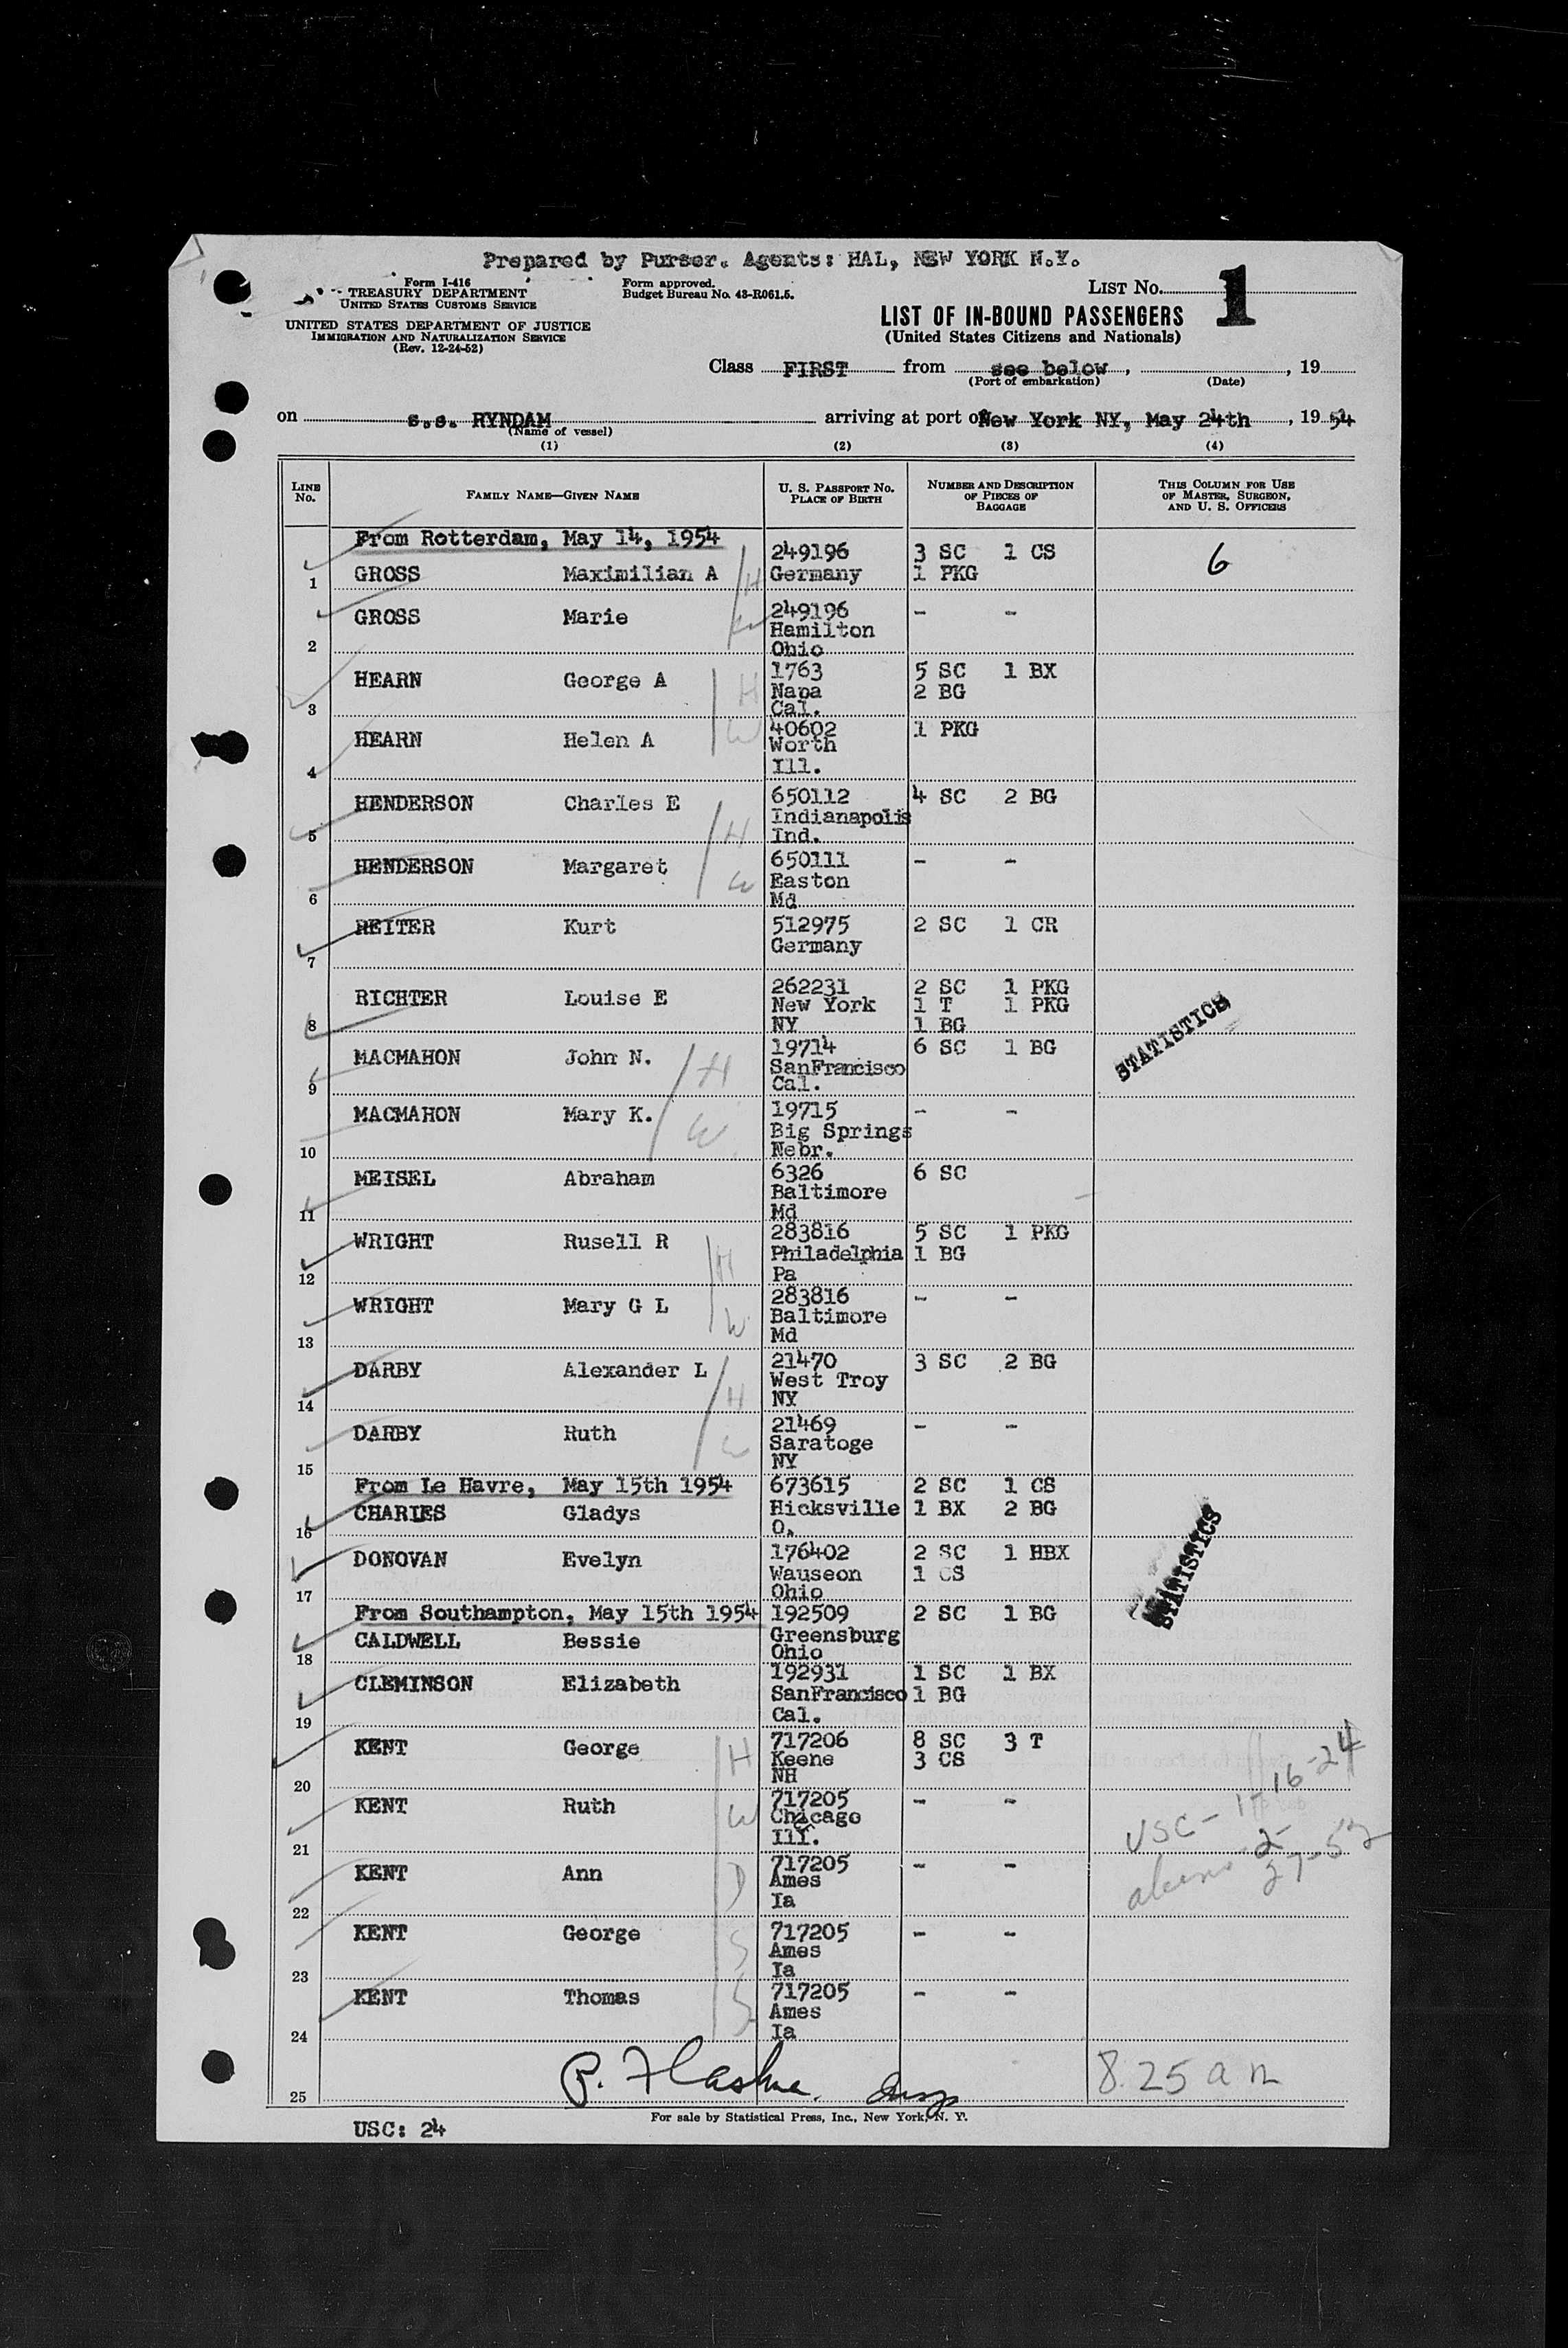 Prepared by Purser. Agents: HAL, NEW YORK N.Y.
Form I-416
TREASURY DEPARTMENT
UNITED STATES CUSTOMS SERVICE
UNITED STATES DEPARTMENT OF JUSTICE
IMMIGRATION AND NATURALIZATION SERVICE
(Rev. 12-24-52)
Form approved.
Budget Bureau No. 43-R061.5.
LIST No. 1
LIST OF IN-BOUND PASSENGERS
(United States Citizens and Nationals)
Class FIRST from see below, , 19
(Port of embarkation) (Date)
on s.s. RYNDAM arriving at port of New York NY, May 24th, 19 54
(Name of vessel)
(1) (2) (3) (4)
LINE No. FAMILY NAME—GIVEN NAME U. S. PASSPORT NO. PLACE OF BIRTH NUMBER AND DESCRIPTION OF PIECES OF BAGGAGE THIS COLUMN FOR USE OF MASTER, SURGEON, AND U. S. OFFICERS
From Rotterdam, May 14, 1954
1 GROSS Maximilian A H 249196 Germany 3 SC 1 CS 1 PKG 6
2 GROSS Marie W 249196 Hamilton Ohio - -
3 HEARN George A H 1763 Napa Cal. 5 SC 1 BX 2 BG
4 HEARN Helen A W 40602 Worth Ill. 1 PKG
5 HENDERSON Charles E H 650112 Indianapolis Ind. 4 SC 2 BG
6 HENDERSON Margaret W 650111 Easton Md - -
7 REITER Kurt 512975 Germany 2 SC 1 CR
8 RICHTER Louise E 262231 New York NY 2 SC 1 PKG 1 T 1 PKG 1 BG
STATISTICS
9 MACMAHON John N. H 19714 SanFrancisco Cal. 6 SC 1 BG
10 MACMAHON Mary K. W 19715 Big Springs Nebr. - -
11 MEISEL Abraham 6326 Baltimore Md 6 SC
12 WRIGHT Rusell R H 283816 Philadelphia Pa 5 SC 1 PKG 1 BG
13 WRIGHT Mary G L W 283816 Baltimore Md - -
14 DARBY Alexander L H 21470 West Troy NY 3 SC 2 BG
15 DARBY Ruth W 21469 Saratoge NY - -
From Le Havre, May 15th 1954
16 CHARLES Gladys 673615 Hicksville O. 2 SC 1 CS 1 BX 2 BG
17 DONOVAN Evelyn 176402 Wauseon Ohio 2 SC 1 HBX 1 CS
STATISTICS
From Southampton, May 15th 1954
18 CALDWELL Bessie 192509 Greensburg Ohio 2 SC 1 BG
19 CLEMINSON Elizabeth 192931 SanFrancisco Cal. 1 SC 1 BX 1 BG
20 KENT George H 717206 Keene NH 8 SC 3 T 3 CS
21 KENT Ruth W 717205 Chicago Ill. - -
USC - 1-16-24
22 KENT Ann D 717205 Ames Ia - -
23 KENT George S 717205 Ames Ia - -
24 KENT Thomas S 717205 Ames Ia - -
25 P. 8.25 a m
For sale by Statistical Press, Inc., New York, N. Y.
USC: 24